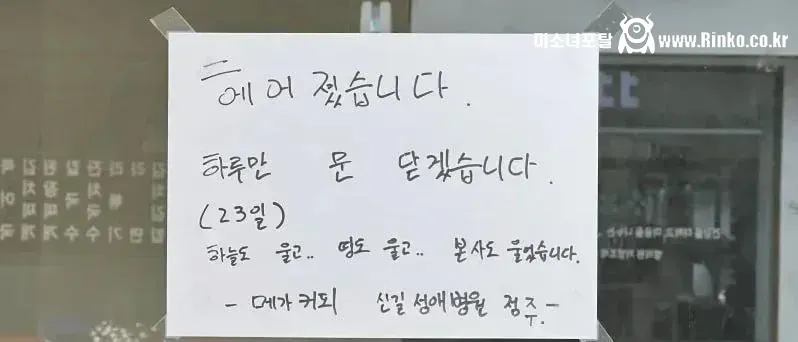 미소녀포탈 www.Rinko.co.kr
헤어 졌습니다.
하루만 문 닫겠습니다.
(23일)
하늘도 울고.. 땅도 울고.. 본사도 울었습니다.
- 메가커피 신길 성애병원 점주.-